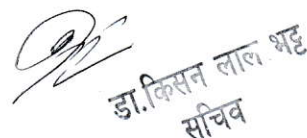 डा.किसन लाल भट्ट
सचिव